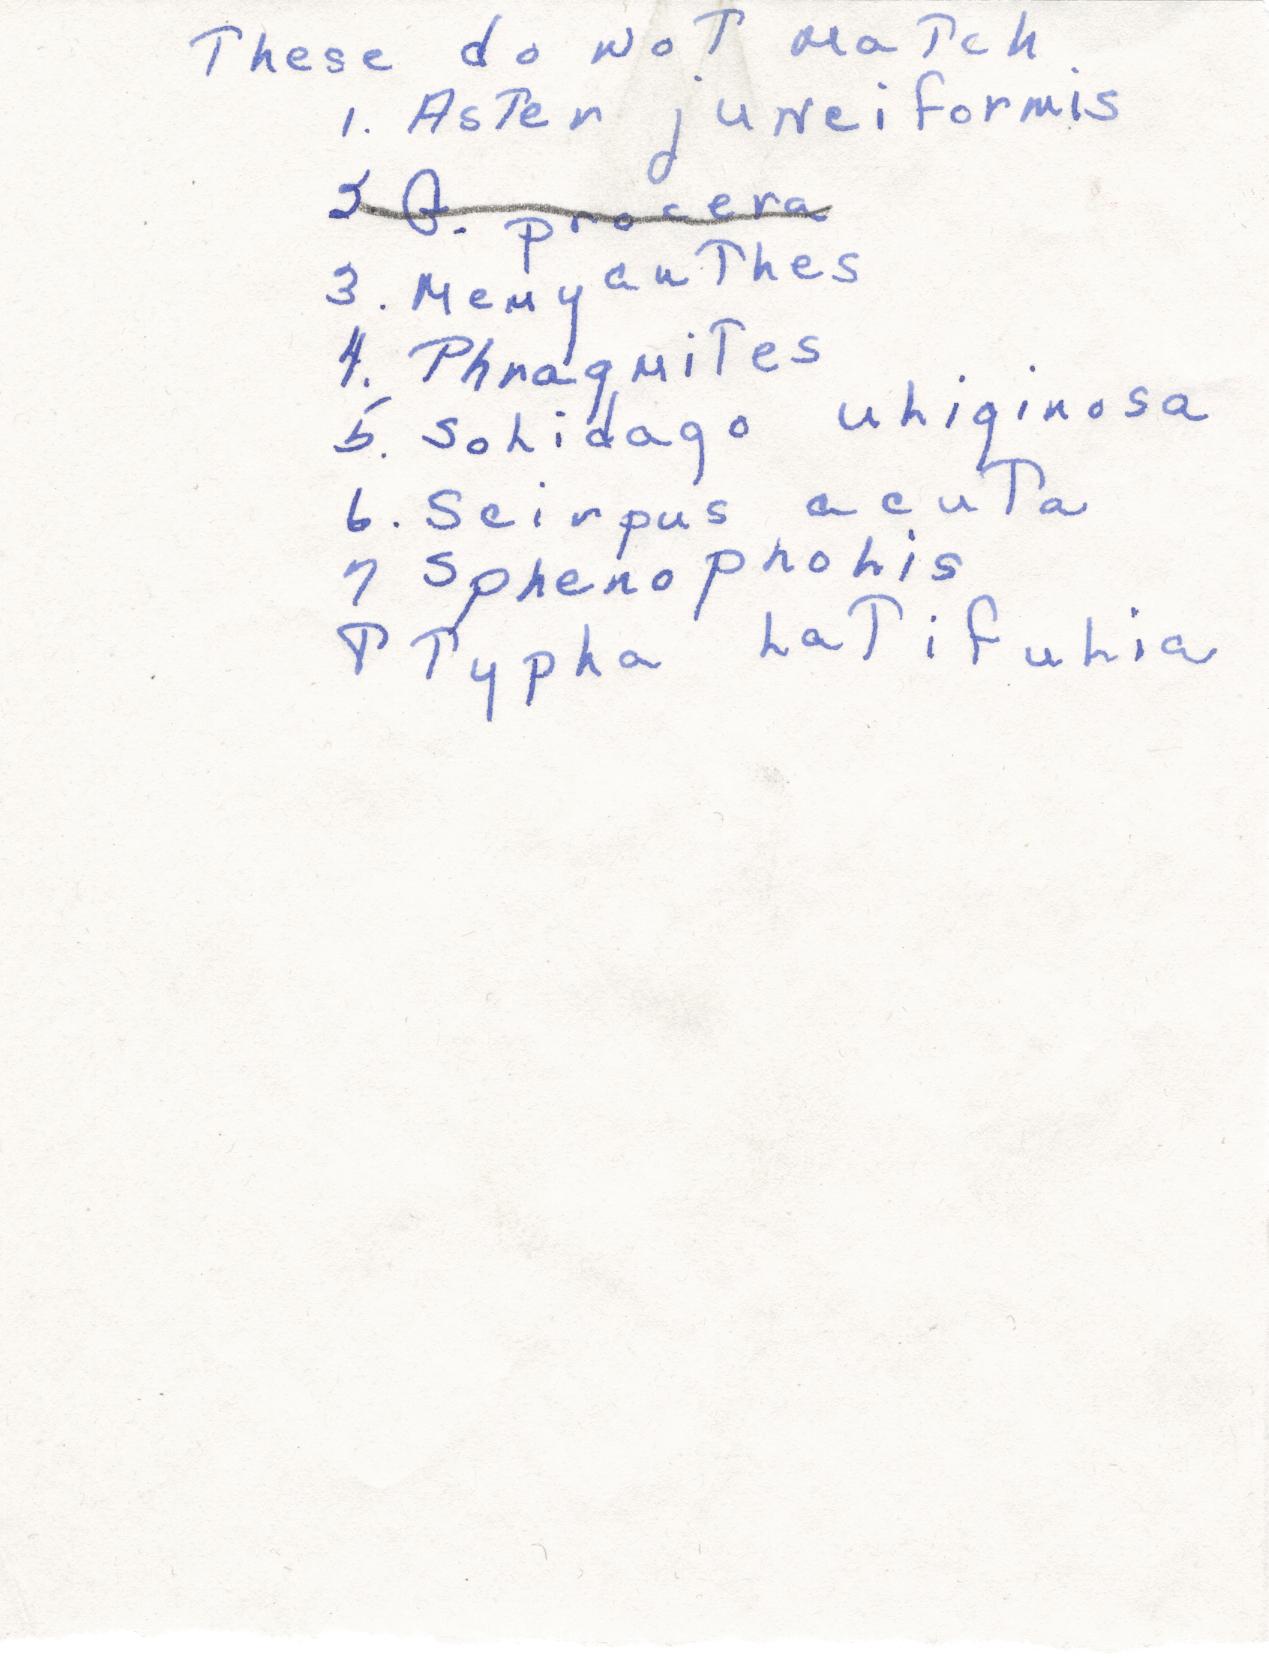 These do not match
1. Aster junciformis
2. B. procera
3. Menyanthes
4. Phragmites
5. Solidago uliginosa
6. Scirpus acuta
7 Sphenopholis
8 Typha latifulia